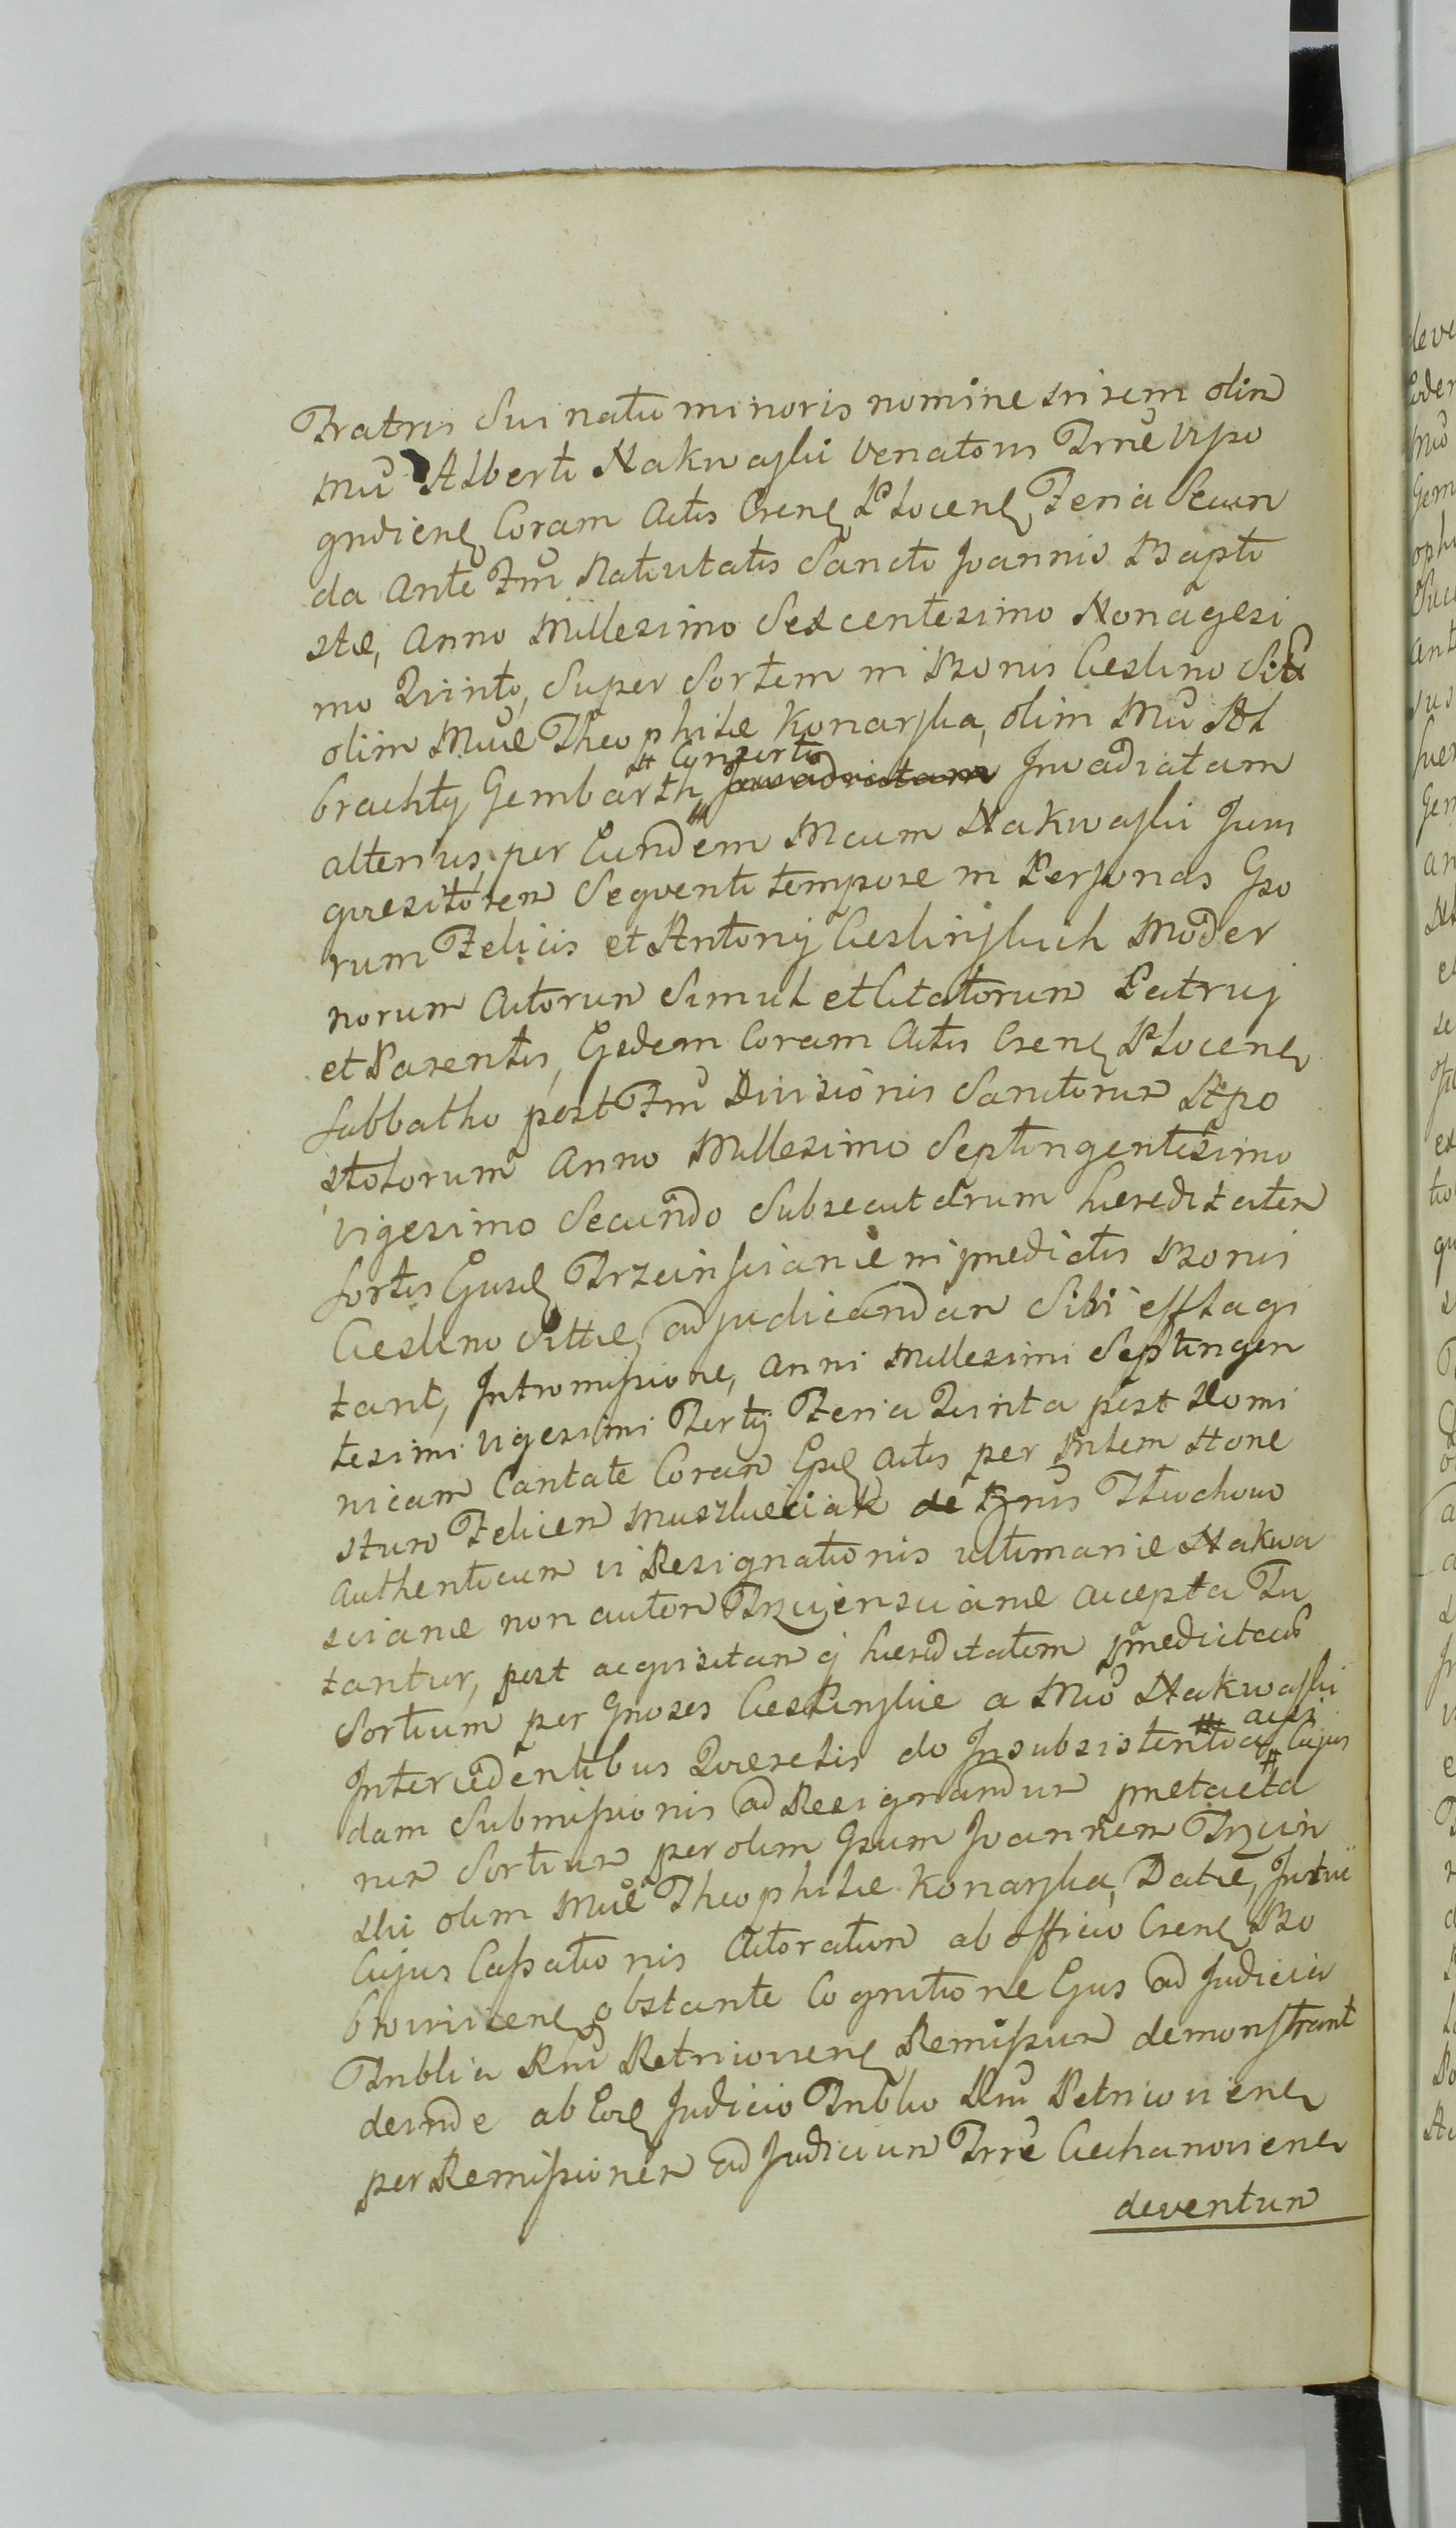 Fratris Sui natu minoris nomine in rem olim
Mci Alberti Nakwaski Venatoris Trrae Viszo
grudiens Coram Actis Crens Plocens Feria Secun
da Ante Ftm Nativitatis Sancti Joannis Bapti
stae, Anno Millesimo Sexcentesimo Nonagesi
mo Quinto, Super Sortem in Bonis Cieslino Sit
olim Mcae Theophilae Konarska, olim Mci Al
brachty Gembarth # Consorti Invadiatam Invadiatam
alterius, per Eundem Mcum Nakwaski Jum
quaesitorem Sequenti tempore in Personas Gso
rum Felicis et Antonij Cieslinskich Moder
norum Actorum Simul et Citatorum Patruj
et Parentis, Eisdem Coram Actis Crens Plocens
Sabbatho post Ftm Divisionis Sanctorum Apo
stolorum Anno Millesimo Septingentesimo
vigesimo Secundo Subsecutarum haereditatem
Sortis Ejusd Trzcinscianae in praedictis Bonis
Cieslino Sittae, adjudicandam Sibi efflagi
tant, Intromissione, Anni Millesimi Septingen
tesimi vigesimi Tertij Feria Quinta post Domi
nicam Cantate Coram Eisd Actis per Mlem Hone
stum Felicem
Authenticum vi Resignationis ultimariae Nakwa
scianae non autem Trzcienscianae accepta Tu
tantur, post acquisitam q haereditatem praedictam
Sortium per Gnosos Cieslinskie a Mco Nakwaski
Intercedentibus Quaerelis de Insubsistentia # Cujus
dam Submissionis ad Resignandum praetacta
rum Sortium per olim Gsum Joannem Trzcin
ski olim Mcae Theophilae Konarska, Datae,
Cujus Cassationis Actoratum ab officio Crens Bo
browicens obstante Cognitione Ejus ad Judicia
Trublia Rni Petricoviens Remissum demonstrant
deinde ab Eod Judicio Trublio Rni Petricoviens
per Remissionem ad Judicium Trrae Ciechanoviens
deventum